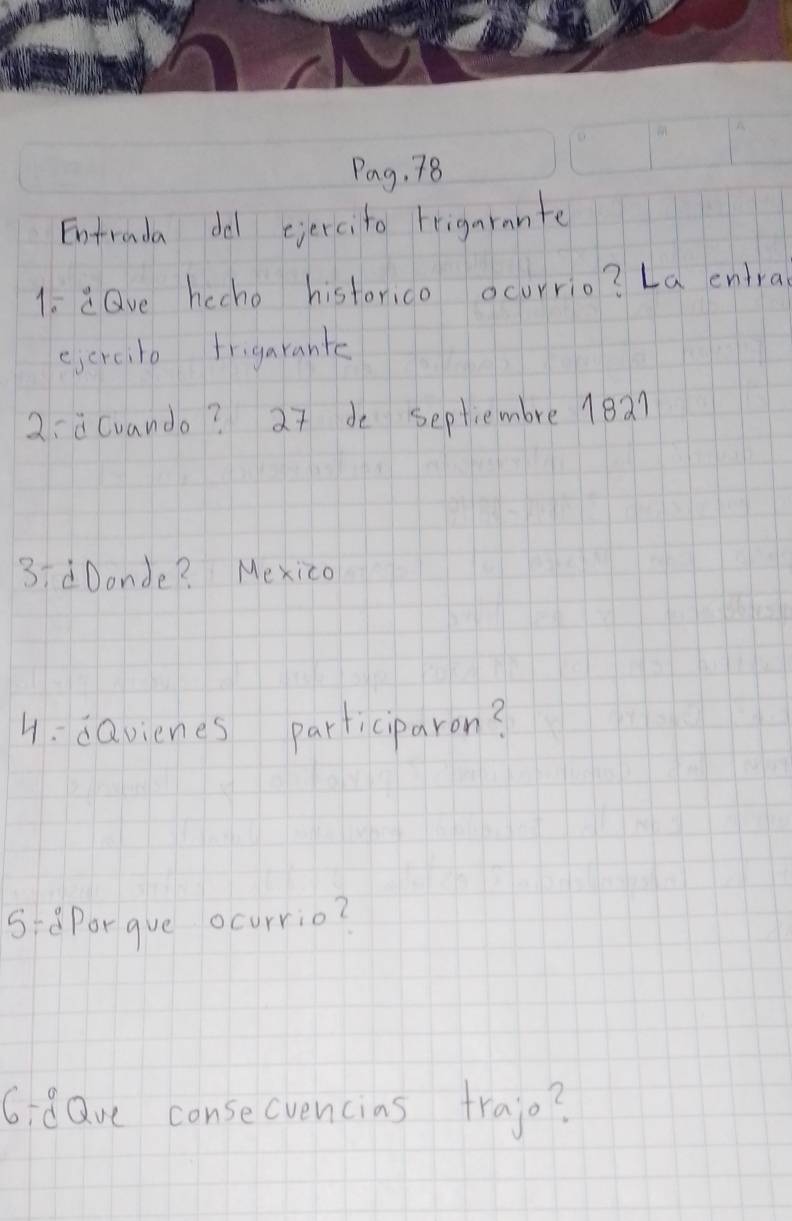 Pag. 78
Entrada del ejercito trigarante
1.- ¿Que hecho historico ocurrio? La entrad
ejercito trigarante
2.- ¿Cuando? 27 de septiembre 1821
3.- ¿Donde? Mexico
4.- ¿Quienes participaron?
5.- ¿Por que ocurrio?
6.- ¿Que consecuencias trajo?